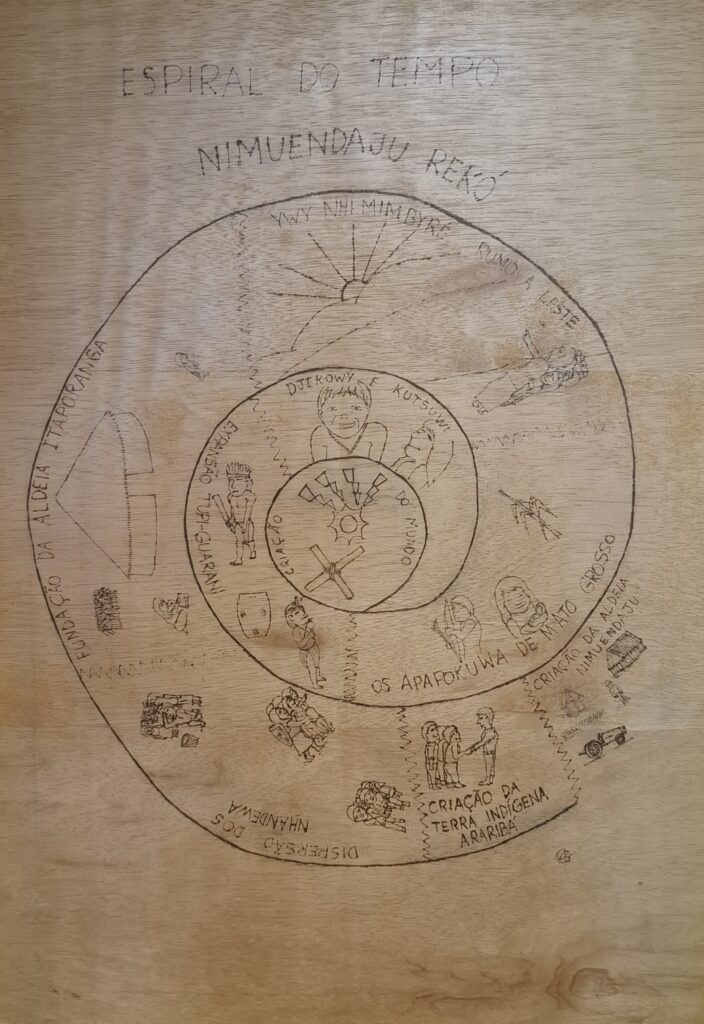 ESPIRAL DO TEMPO
NIMUENDAJU REKÓ
YWY NHEMIMBYRÉ
RUMO A LESTE
FUNDAÇÃO DA ALDEIA ITAPORANGA
DJEKOWY E KUTSUWI
EXPANSÃO TUPI-GUARANI
CRIAÇÃO
DO MUNDO
OS APAPOKUWA DE MATO GROSSO
CRIAÇÃO DA ALDEIA
NIMUENDAJU
CRIAÇÃO DA
TERRA INDÍGENA
ARARIBÁ
DISPERSÃO DOS
NHANDEWA